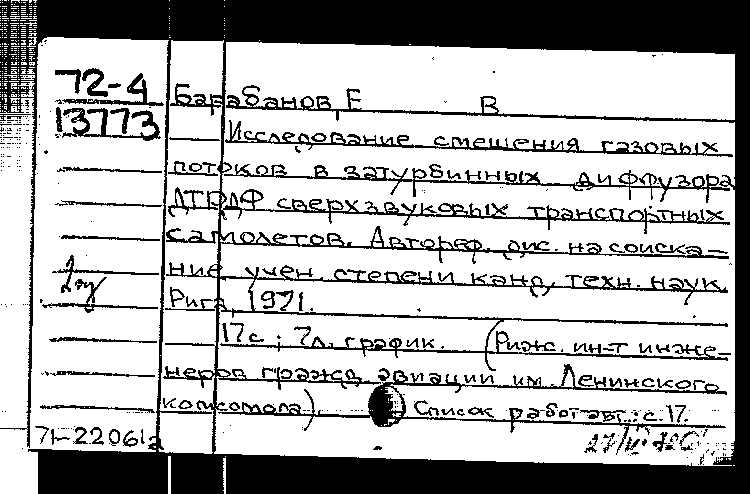 72-4
13773
Барабанов, Е В
Исследование смешения газовых
потоков в затурбинных диффузора
ДТРДФ сверхзвуковых транспортных
самолетов. Автореф. дис. на соиска-
ние учен. степени канд. техн. наук.
Рига, 1971.
17 с.; 7 л. график. (Рижс. ин-т инже-
неров гражд. авиации им. Ленинского
комсомола). Список работ авт.: с. 17.
71-22061а